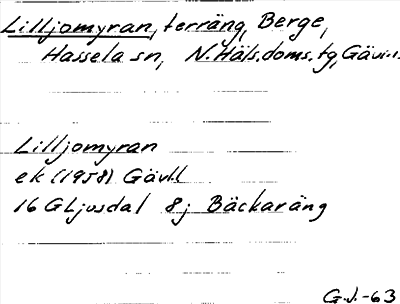 Lilljomyran, terräng, Berge,
Hassela sn, N.Häls.doms.tg, Gävl.l.
Lilljomyran
ek (1958) Gävl.l
16 G Ljusdal 8j Bäckaräng
G.J.-63